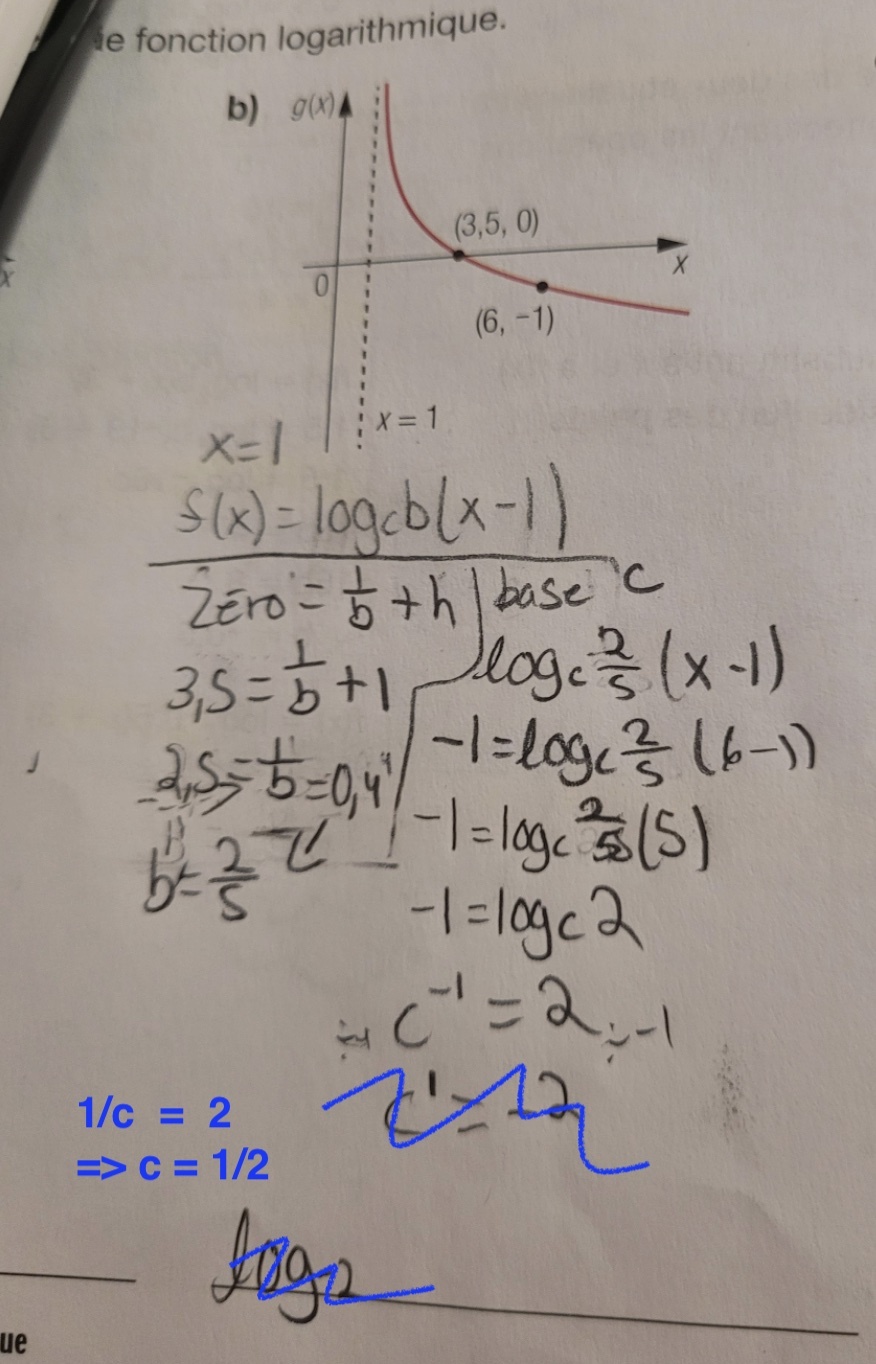 ie fonction logarithmique.
b) g(x)
(3,5, 0)
x
0
(6, −1)
x = 1
x=1
f(x) = log_c b(x-1)
Zéro = 1/b + h | base c
3,5 = 1/b + 1
log_c 2/5 (x-1)
2,5 = 1/b = 0,4
-1 = log_c 2/5 (6-1)
b = 2/5
-1 = log_c 2/5 (5)
-1 = log_c 2
÷-1 c^-1 = 2 ÷-1
c^1 = -2
1/c = 2
=> c = 1/2
log_2
ue